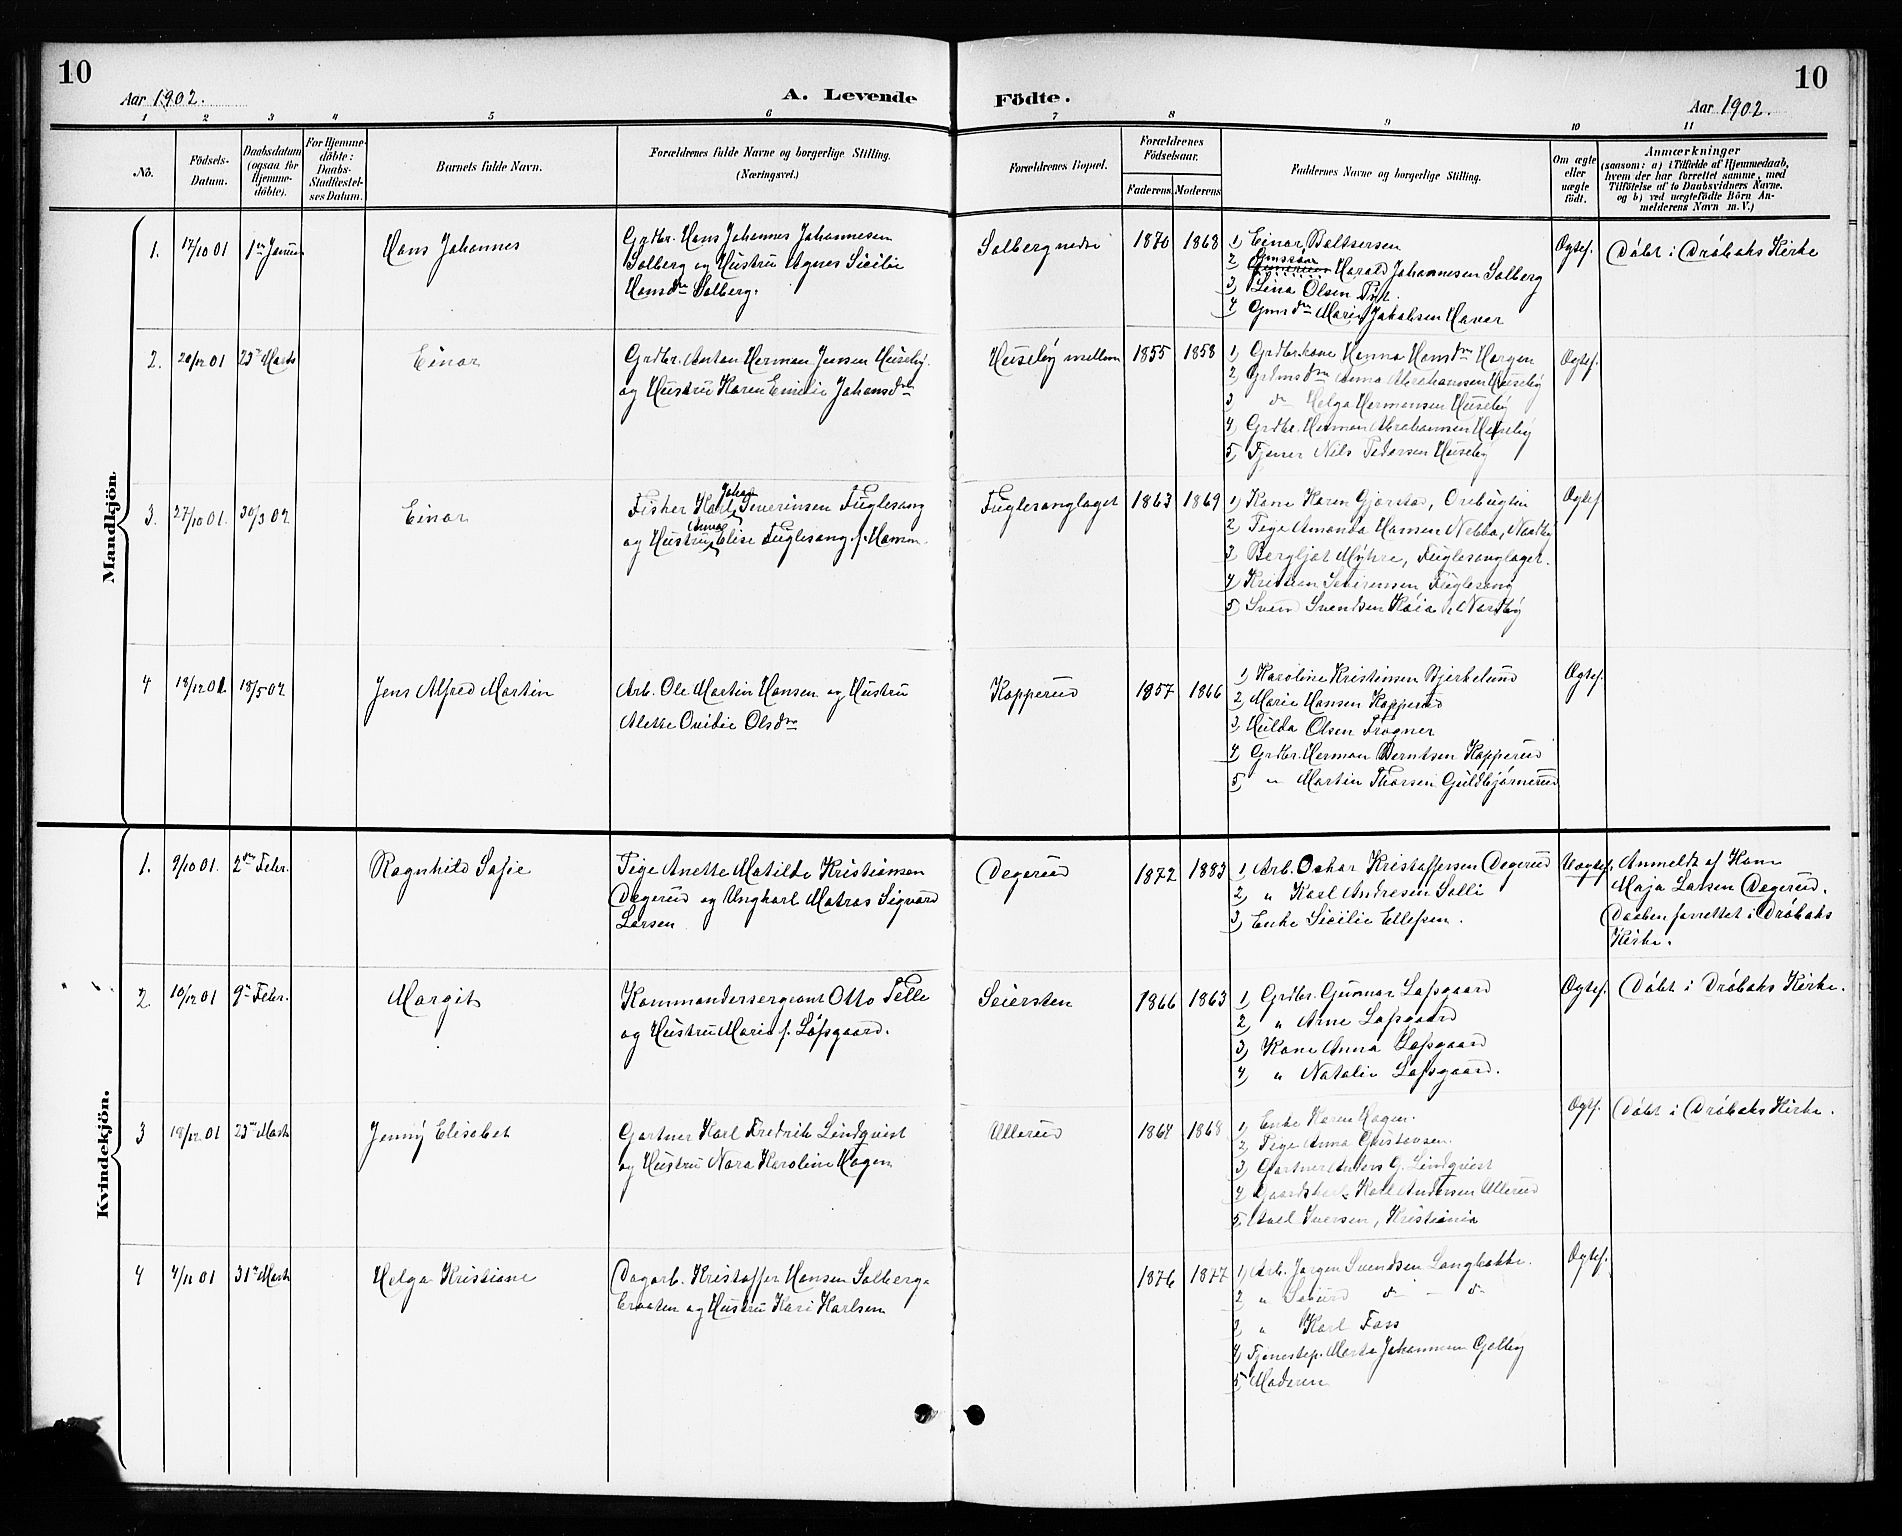 10
Aar 1902.
A. Levende
Födte.
Aar 1902.
10
1 2 3 4 5 6 7 8 9 10 11
No.
Födsels-
Datum.
Daabsdatum
(ogsaa for
Hjemme-
döbte).
For Hjemme-
döbte:
Daabs-
Stadfæstel-
ses Datum.
Barnets fulde Navn.
Forældrenes fulde Navne og borgerlige Stilling.
(Næringsvei.)
Forældrenes Bopæl.
Forældrenes
Födselsaar.
Faderens. Moderens.
Faddernes Navne og borgerlige Stilling.
Om ægte
eller
uægte
födt.
Anmærkninger
(saasom: a) i Tilfælde af Hjemmedaab,
hvem der har forrettet samme, med
Tilföielse af to Daabsvidners Navne.
og b) ved uægtefödte Börn An-
melderens Navn m. V.)
Mandkjön
1. 17/10 01 1ste Januar Hans Johannes
Grdbr. Hans Johannes Johannesen
Solberg og Hustru Agnes Sicilie
Hansdtr Solberg.
Solberg nedre 1870 1868
1) Einar Baltsersen
2 Gmssøn Harald Johannesen Solberg
3) Lina Olsen
4) Gmsdtr Marie Jakobsen Haver
Ægtef. Døbt i Drøbaks Kirke
2. 20/12 01 23de Marts Einar
Grdbr. Anton Herman Jensen Huseby.
og Hustru Karen Emilie Johansdtr
Huseby mellem 1855 1858
1) Grdbr.kone Hanna Hansdtr Horgen
2) Grdmsdtr Anna Abrahamsen Huseby
3) do Helga Hermansen Huseby
4) Grdbr. Herman Abrahamsen Huseby
5) Tjener Nils Pedersen Huseby
Ægtef.
3. 27/10 01. 30/3 02 Einar
Fisker Karl Johan Severinsen Fuglesang
og Hustru Anna Elise Fuglesang f. Hamm.
Fuglesanglaget 1863 1869
1) Kone Karen Gjørstad, Orebugten
2 Pige Amanda Hansen Nebba, Nordby
3 Bergljot Myhre, Fuglesanglaget.
4) Kristian Severinsen, Fuglesang
5) Svend Svendsen Kaia, Nordby
Ægtef
4 18/12 01. 18/5 02 Jens Alfred Martin
Arb. Ole Martin Hansen og Hustru
Alette Ovidie Olsdtr
Kopperud 1857 1866
1) Karoline Kristensen Bjerkelund
2) Marie Hansen Kopperud
3) Hulda Olsen Frogner
4) Grdbr. Herman Berntsen Kopperud
5) " Martin Thorsen Guldbjørnerud
Ægtef.
Kvindekjön.
1. 9/10 01. 2den Febr. Ragnhild Sofie
Pige Anette Matilde Kristiansen
Degerud og Ungkarl Matros Sigvard
Larsen
Degerud 1872 1883
1) Arb. Oskar Kristoffersen Degerud
2) " Karl Andresen Solli
3) Enke Sicilie Ellefsen.
Uægtef. Anmeldt af Kone
Maja Larsen Degerud.
Daaben forrettet i Drøbaks
Kirke.
2 10/12 01 9de Febr. Margit
Kommandersergeant Otto Telle
og Hustru Marie f. Løfsgaard.
Seiersten 1866 1863
1) Grdbr. Gunnar Løfsgaard
2) " Arne Løfsgaard
3) Kone Anna Løfsgaard
4) " Natalie Løfsgaard.
Ægtef. Døbt i Drøbaks Kirke.
3 18/12 01 23de Marts Jenny Elisabet
Gartner Karl Fredrik Lindqvist
og Hustru Nora Karoline Hagen
Ullerud 1864 1868
1) Enke Karen Hagen.
2 Pige Anna Gustavsen.
3) Gartner Anders G. Lindqvist
4) Karl Andersen Ullerud
5) Iversen, Kristiania
Ægtef. Døbt i Drøbaks Kirke.
4 4/11 01 31te Marts Helga Kristiane
Dagarb. Kristoffer Hansen Solberg-
braaten og Hustru Kari Karlsen
1876 1877
1) Arb. Jørgen Svendsen Langbakke.
2 " Sigurd do - do
3 " Karl Foss
4) Tjenestep. Marta Johannesen Gølby
5) Moderen
Ægtef.